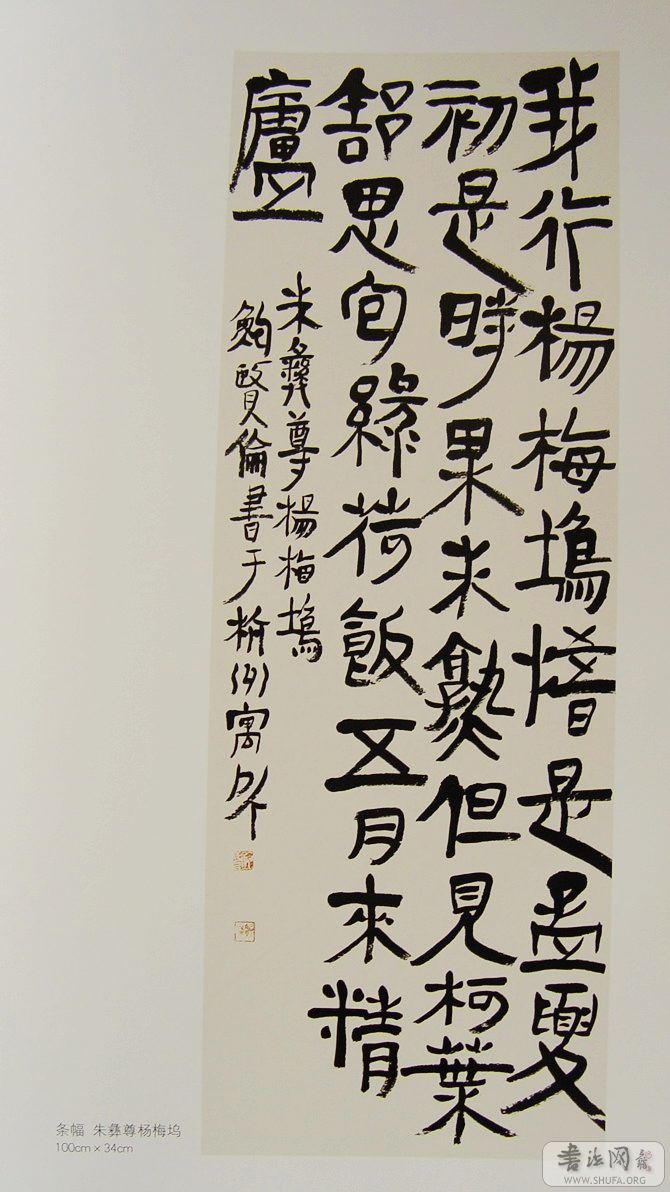 我行楊梅塢惜是孟夏
初是時果未熟但見柯葉
舒思包綠荷飯五月來精
廬
朱彝尊楊梅塢
鮑賢倫書于杭州寓所
条幅 朱彝尊杨梅坞
100cm×34cm
书法网
WWW.SHUFA.ORG